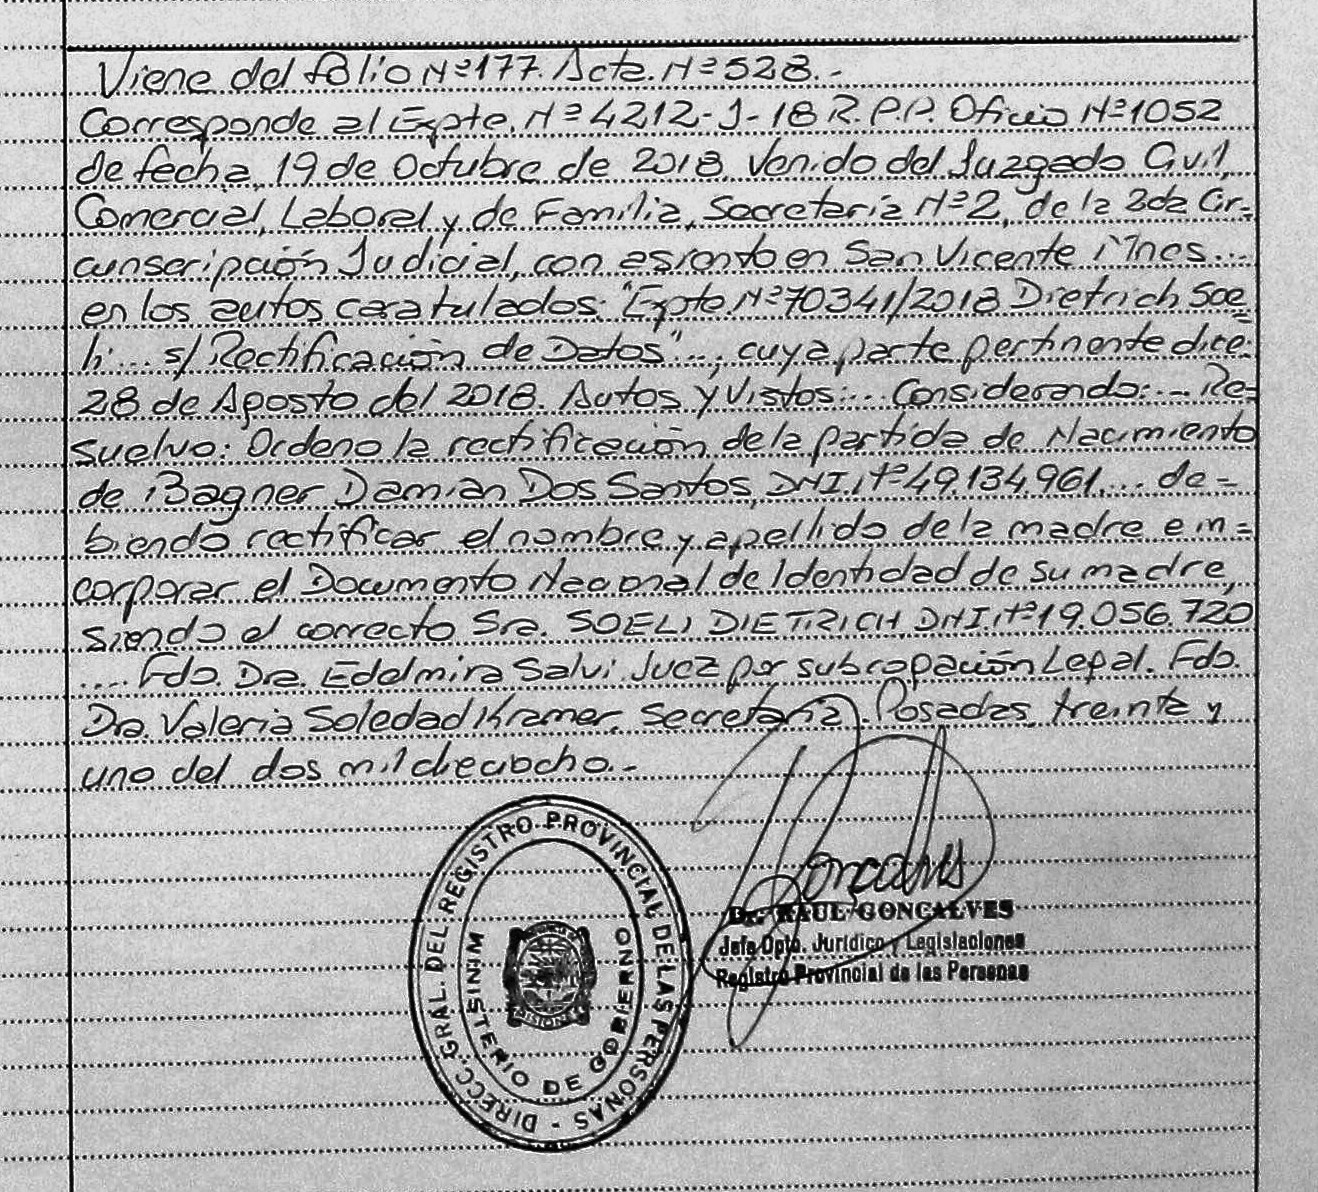 Viene del folio Nº177. Acta. Nº528.-
Corresponde al Expte. Nº4212-J-18 R.P.P. Oficio Nº1052
de fecha 19 de Octubre de 2018 Venido del Juzgado Civil,
Comercial, Laboral y de Familia, Secretaría Nº2, de la 2da Cir=
cunscripción Judicial, con asiento en San Vicente Mnes....
en los autos caratulados: "Expte. Nº70341/2018 Dietrich Soe
li... s/ Rectificación de Datos"..., cuya parte pertinente dice:
28 de Agosto del 2018. Autos y Vistos:... Considerando:... Re=
suelvo: Ordeno la rectificación de la partida de Nacimiento
de Bagner Damian Dos Santos, DNI. Nº49.134.961.... de=
biendo rectificar el nombre y apellido de la madre e in=
corporar el Documento Nacional de Identidad de su madre,
siendo el correcto Sra. SOELI DIETRICH, DNI. Nº19.056.720
.... Fdo. Dra. Edelmira Salvi. Juez por subrogación Legal. Fdo.
Dra. Valeria Soledad Kramer, Secretaria. Posadas, treinta y
uno del dos mil dieciocho.-
DIRECC. GRAL. DEL REGISTRO PROVINCIAL DE LAS PERSONAS -
MINISTERIO DE GOBIERNO
MISIONES
Dr. RAUL GONCALVES
Jefe Dpto. Jurídico y Legislaciones
Registro Provincial de las Personas